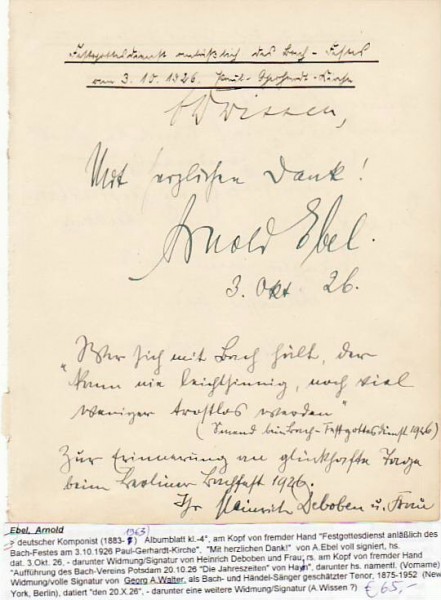 Festgottesdienst anläßlich des Bach-Festes
am 3.10.1926. Paul-Gerhardt-Kirche
Wissen,
Mit herzlichen Dank!
Arnold Ebel.
3. Okt. 26.
Wer sich mit Bach hält, der
kann nie leichtsinnig, noch viel
weniger trostlos werden"
(Smend beim Bach-Festgottesdienst 1926)
Zur Erinnerung an glückhafte Tage
beim Berliner Bachfest 1926.
Ihr Heinrich Deboben u. Frau
Ebel, Arnold
> deutscher Komponist (1883- 1963) Albumblatt kl.-4°, am Kopf von fremder Hand "Festgottesdienst anläßlich des
Bach-Festes am 3.10.1926 Paul-Gerhardt-Kirche", "Mit herzlichen Dank!" von A.Ebel voll signiert, hs.
dat. 3.Okt. 26, - darunter Widmung/Signatur von Heinrich Deboben und Frau; rs. am Kopf von fremder Hand
"Aufführung des Bach-Vereins Potsdam 20.10.26 "Die Jahreszeiten" von Hayn", darunter hs. namentl. (Vorname)
Widmung/volle Signatur von Georg A.Walter, als Bach- und Händel-Sänger geschätzter Tenor, 1875-1952 (New
York, Berlin), datiert "den 20.X.26", - darunter eine weitere Widmung/Signatur (A.Wissen ?) € 65,-